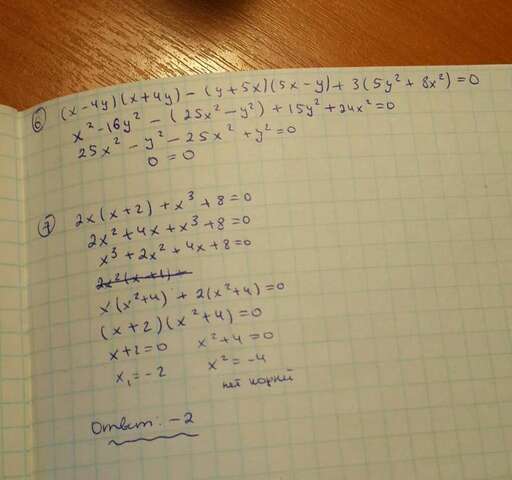 6 (x-4y)(x+4y) - (y+5x)(5x-y) + 3(5y²+8x²) = 0
x² - 16y² - (25x² - y²) + 15y² + 24x² = 0
25x² - y² - 25x² + y² = 0
0 = 0
7 2x(x+2) + x³ + 8 = 0
2x² + 4x + x³ + 8 = 0
x³ + 2x² + 4x + 8 = 0
2x²(x+1) +
x(x²+4) + 2(x²+4) = 0
(x+2)(x²+4) = 0
x+2=0 x²+4=0
x₁ = -2 x² = -4
нет корней
Ответ: -2